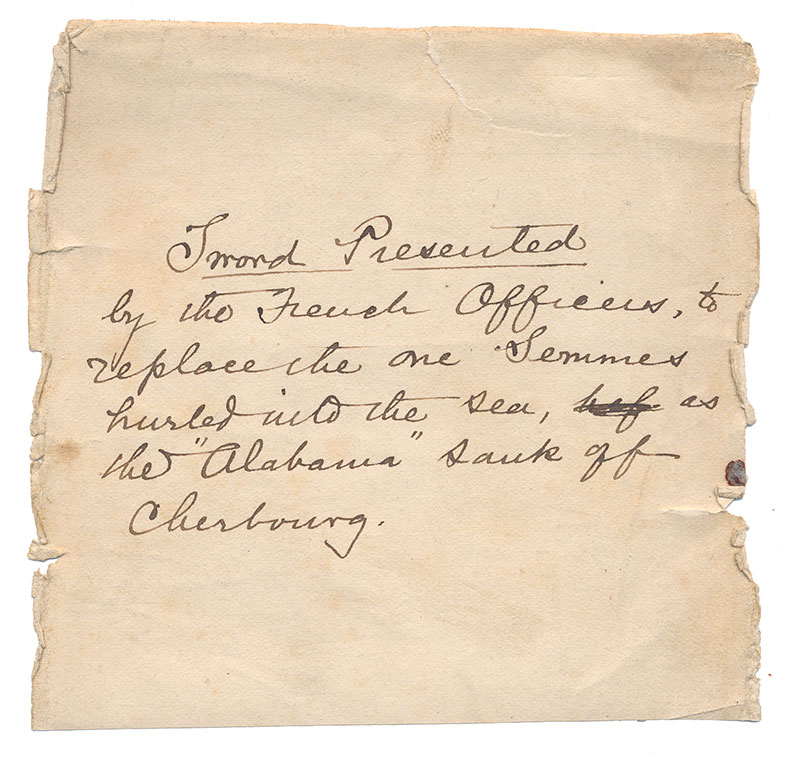 Sword Presented
by the French Officers, to
replace the one Semmes
hurled into the sea, as
the "Alabama" sank off
Cherbourg.